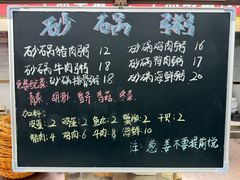 砂 锅 粥
砂锅猪肉粥 12 砂锅鸡肉粥 16
砂锅牛肉粥 18 砂锅 粥 17
砂锅排骨粥 18 砂锅海鲜粥 20
青菜 胡萝 香菇 冬菜
加料:
皮蛋:2 鸡蛋:2 鱼丸:2 :2 干贝:2
猪肉:4 鸡肉:6 牛肉:8 海鲜:10
注:葱姜不要提前说